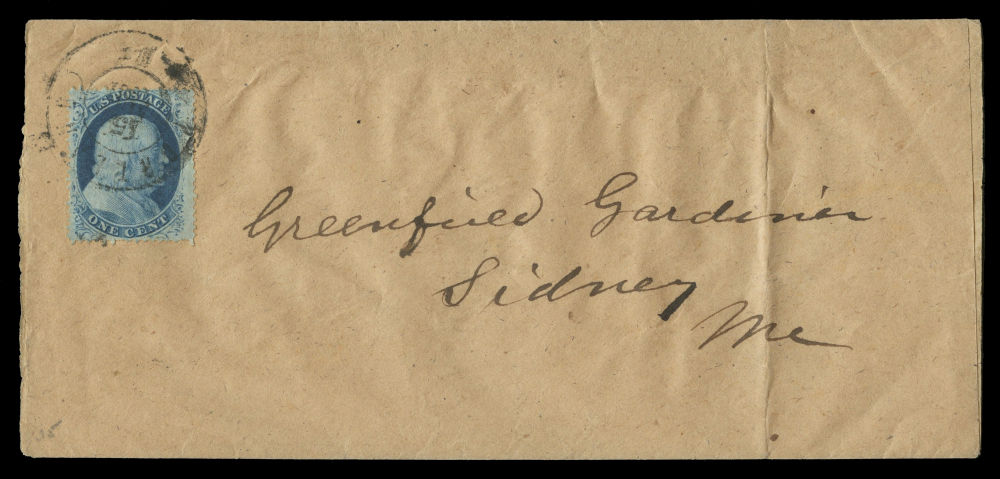 U.S. POSTAGE
ONE CENT
15
Greenfield Gardiner
Sidney
Me